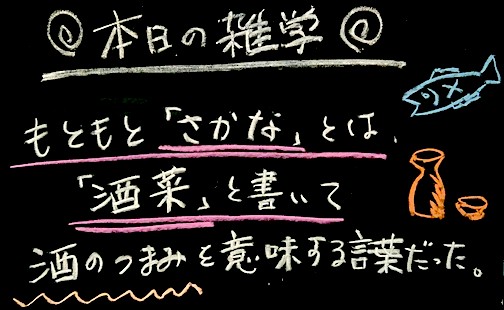 本日の雑学
もともと「さかな」とは、
「酒菜」と書いて
酒のつまみを意味する言葉だった。